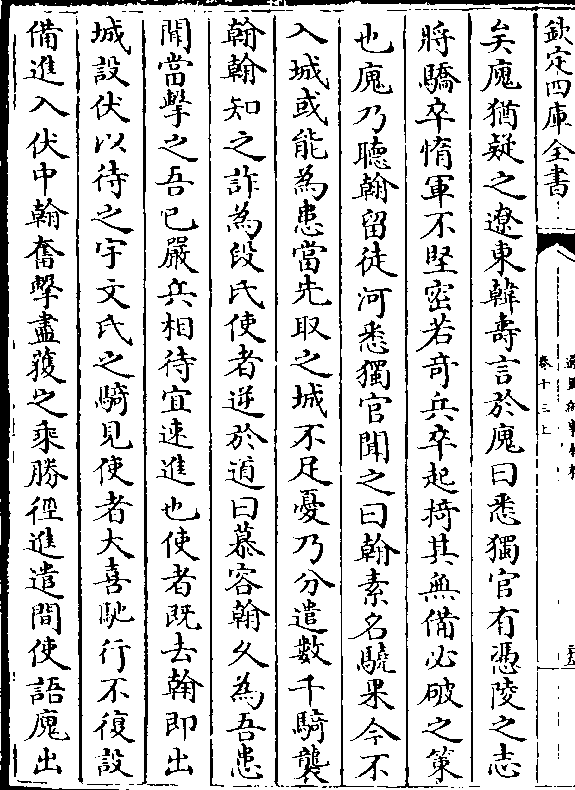 欽定四庫全書
卷十三上
矣廆猶疑之遼東韓壽言於廆曰悉獨官有憑陵之志
將驕卒惰軍不堅密若奇兵卒起掎其無備必破之策
也廆乃聽翰留徒河悉獨官聞之曰翰素名驍果今不
入城或能為患當先取之城不足憂乃分遣數千騎襲
翰翰知之詐為段氏使者逆於道曰慕容翰久為吾患
聞當擊之吾已嚴兵相待宜速進也使者既去翰即出
城設伏以待之宇文氏之騎見使者大喜馳行不復設
備進入伏中翰奮擊盡獲之乘勝徑進遣間使語廆出